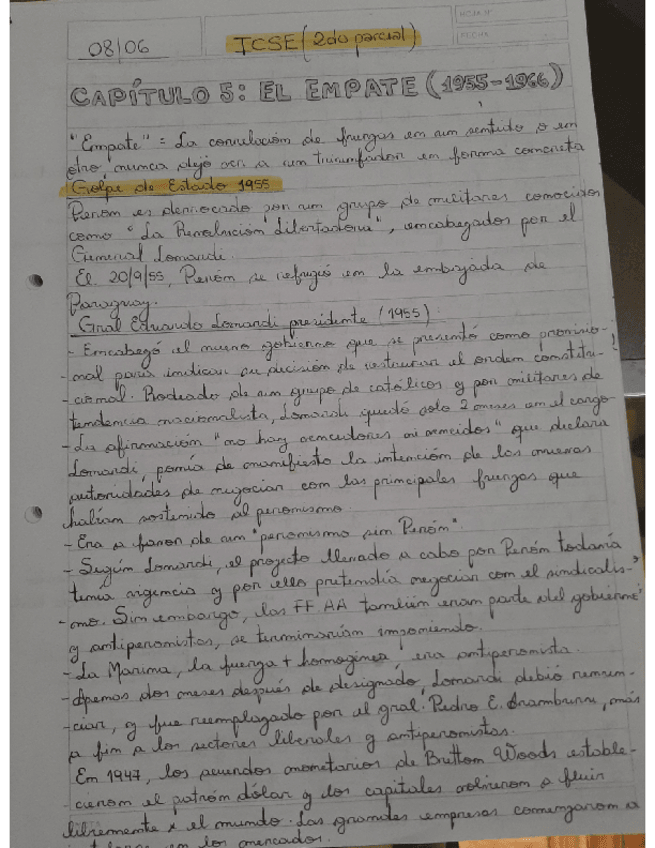 HOJA Nº
FECHA
08/06
ICSE (2do parcial)
CAPÍTULO 5: EL EMPATE (1955-1966)
"Empate" = La correlación de fuerzas en un sentido o en
otro, nunca dejó ver a un triunfador en forma concreta
Golpe de Estado 1955
Perón es derrocado por un grupo de militares conocidos
como "La Revolución Libertadora", encabezados por el
General Lonardi.
El 20/9/55, Perón se refugió en la embajada de
Paraguay.
Gral Eduardo Lonardi presidente (1955).
- Encabezó el nuevo gobierno que se presentó como provisio-
-nal para indicar su decisión de restaurar el orden constitu-
-cional. Rodeado de un grupo de católicos y por militares de
tendencia nacionalista, Lonardi quedó solo 2 meses en el cargo.
- La afirmación "no hay vencedores ni vencidos" que declara
Lonardi, ponía de manifiesto la intención de las nuevas
autoridades de negociar con las principales fuerzas que
habían sostenido al peronismo.
- Era a favor de un "peronismo sin Perón".
- Según Lonardi, el proyecto llevado a cabo por Perón todavía
tenía vigencia y por ello pretendía negociar con el sindicalis-
-mo. Sin embargo, las FF AA también eran parte del gobierno
y antiperonistas, se terminarían imponiendo.
- La Marina, la fuerza + homogénea, era antiperonista.
- Apenas dos meses después de designado, Lonardi debió renun-
-ciar, y fue reemplazado por el gral. Pedro E. Aramburu, más
a fin a los sectores liberales y antiperonistas.
En 1947, los acuerdos monetarios de Bretton Woods estable-
-cieron el patrón dólar y los capitales volvieron a fluir
libremente x el mundo. Las grandes empresas comenzaron a
en los mercados.